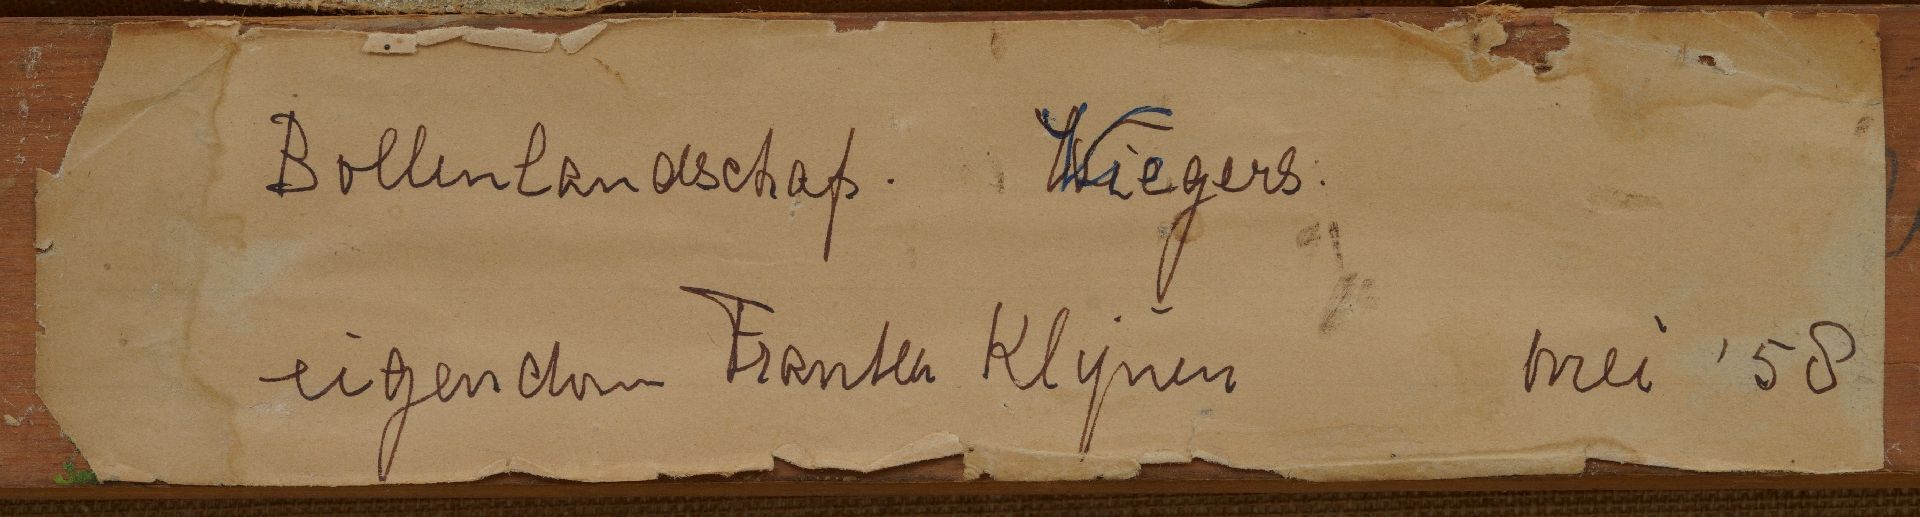 Bollenlandschap. Wiegers.
eigendom Franken Klijnen mei '58